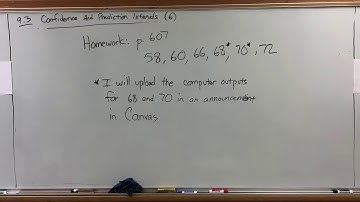 9.3 Confidence And Prediction Intervals (6)
Homework: p. 607
58, 60, 66, 68*, 70*, 72
* I will upload the computer outputs
for 68 and 70 in an announcement
in Canvas